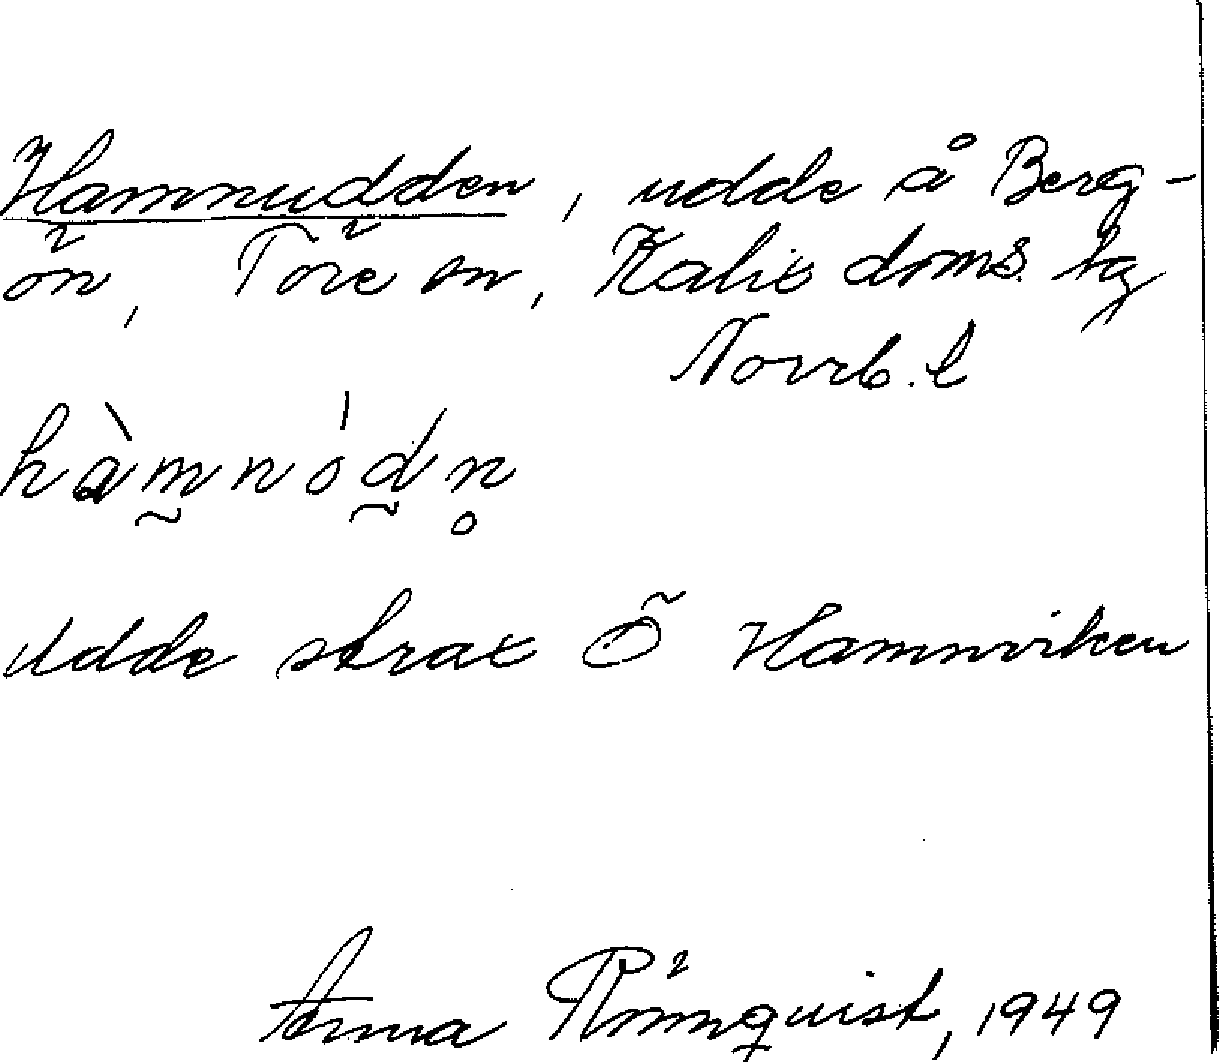 Hamnudden, udde å Berg-
ön, Töre sn, Kalix doms. tg
Norrb. l
hàm̰nód̰n̥
Udde strax Ö Hamnviken
Anna Rönnquist, 1949